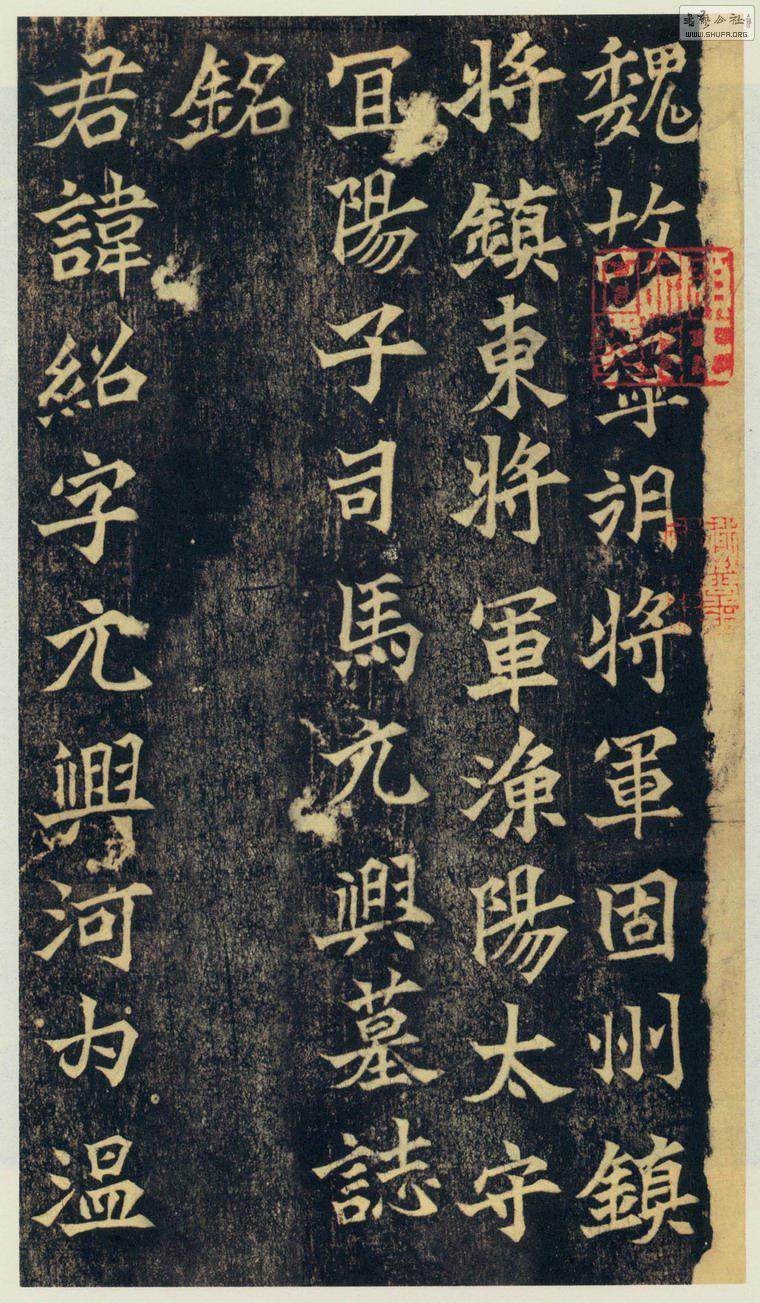 魏故寧朔將軍固州鎮
將鎮東將軍漁陽太守
宜陽子司馬元興墓誌
銘
君諱紹字元興河内溫
WWW.SHUFA.ORG